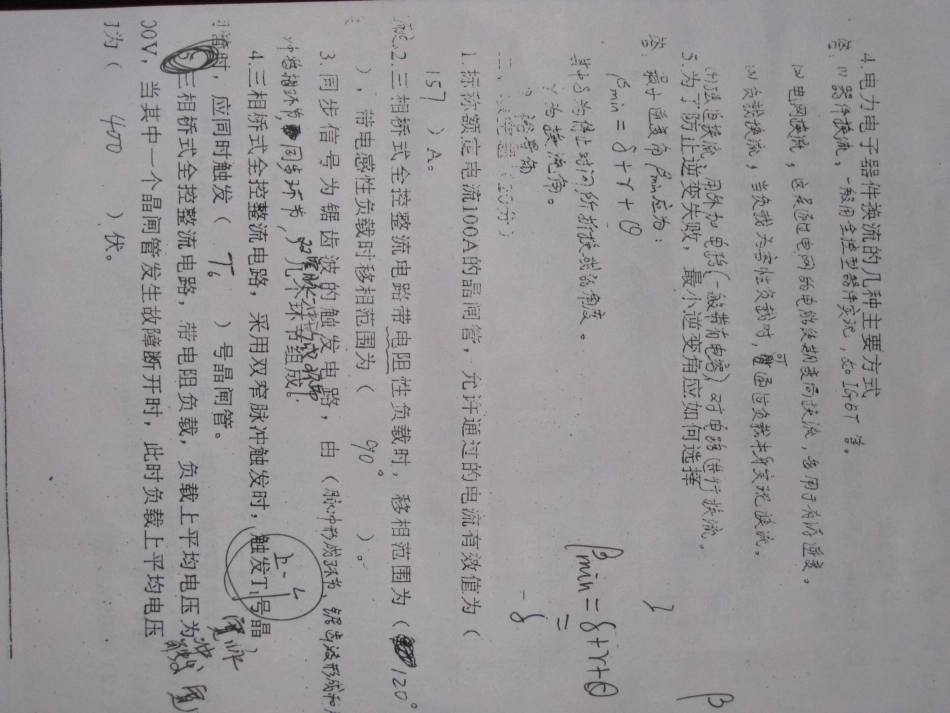 4.电力电子器件换流的几种主要方式
答:(1)器件换流,一般用全控型器件实现,如IGBT等。
(2)电网换流,这是通过电网的电能使期变向换流,多用于有源逆变。
(3)负载换流,当负载为容性负载时,可通过负载本身实现换流。
(4)强迫换流,用外加电路(一般带有电容)对电路进行换流。
5.为了防止逆变失败,最小逆变角应如何选择
答:最小逆变角βmin应为:
βmin = δ+γ+θ
其中δ为停止时间所折换成的角度。
γ为换流角。
βmin = δ+γ+θ
β
1.标称额定电流100A的晶闸管,允许通过的电流有效值为(
157 )A。
2.三相桥式全控整流电路带电阻性负载时,移相范围为( 120°
),带电感性负载时移相范围为( 90° )。
3.同步信号为锯齿波的触发电路,由(脉冲形成环节、锯齿波形成和
环节,同步环节,)几个环节组成。
4.三相桥式全控整流电路,采用双窄脉冲触发时,触发T1号晶
时,应同时触发( T6 )号晶闸管。
5 三相桥式全控整流电路,带电阻负载,负载上平均电压为
00V,当其中一个晶闸管发生故障断开时,此时负载上平均电压
为( 400 )伏。